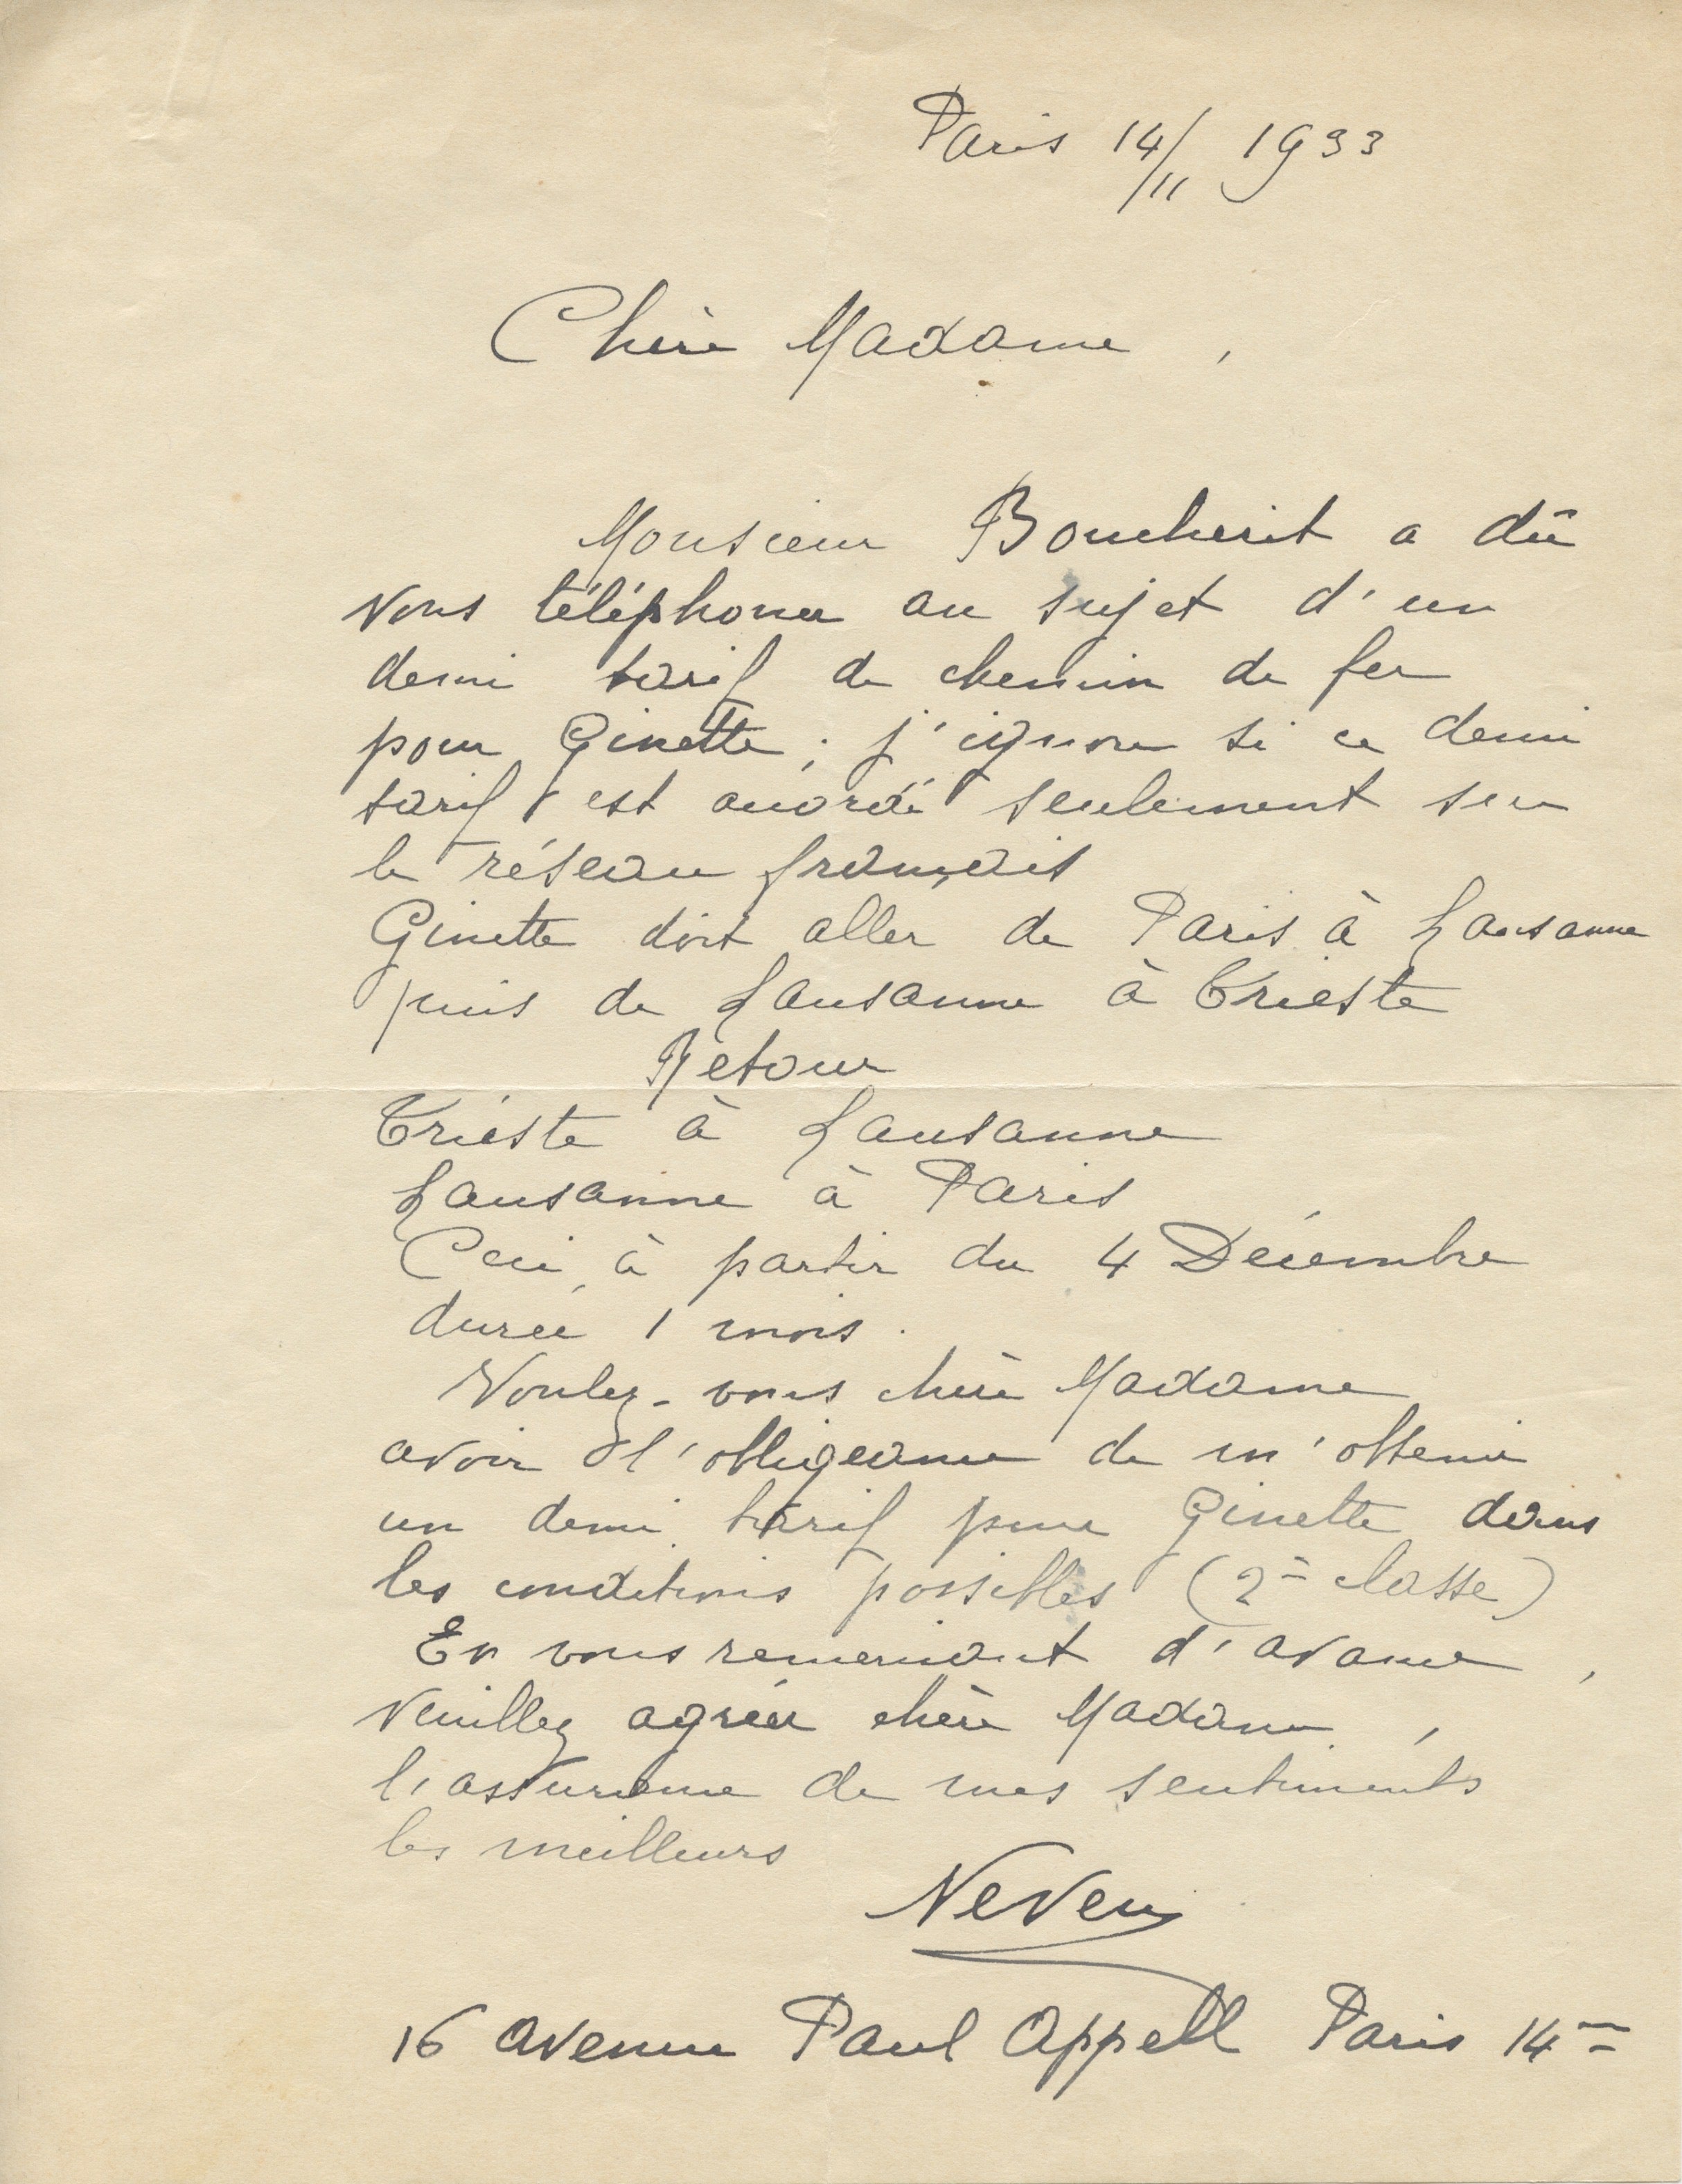 Paris 14/11 1933
Chère Madame,
Monsieur Boucherit a dû
vous téléphoner au sujet d'un
demi tarif de chemin de fer
pour Ginette ; j'ignore si ce demi
tarif est accordé seulement sur
le réseau français
Ginette doit aller de Paris à Lausanne
puis de Lausanne à Trieste
Retour
Trieste à Lausanne
Lausanne à Paris
Ceci, à partir du 4 Décembre
durée 1 mois.
Voulez-vous chère Madame
avoir l'obligeance de m'obtenir
un demi tarif pour Ginette dans
les conditions possibles (2e classe)
En vous remerciant d'avance,
Veuillez agréer chère Madame,
l'assurance de mes sentiments
les meilleurs
Neveu
16 avenue Paul Appell Paris 14e